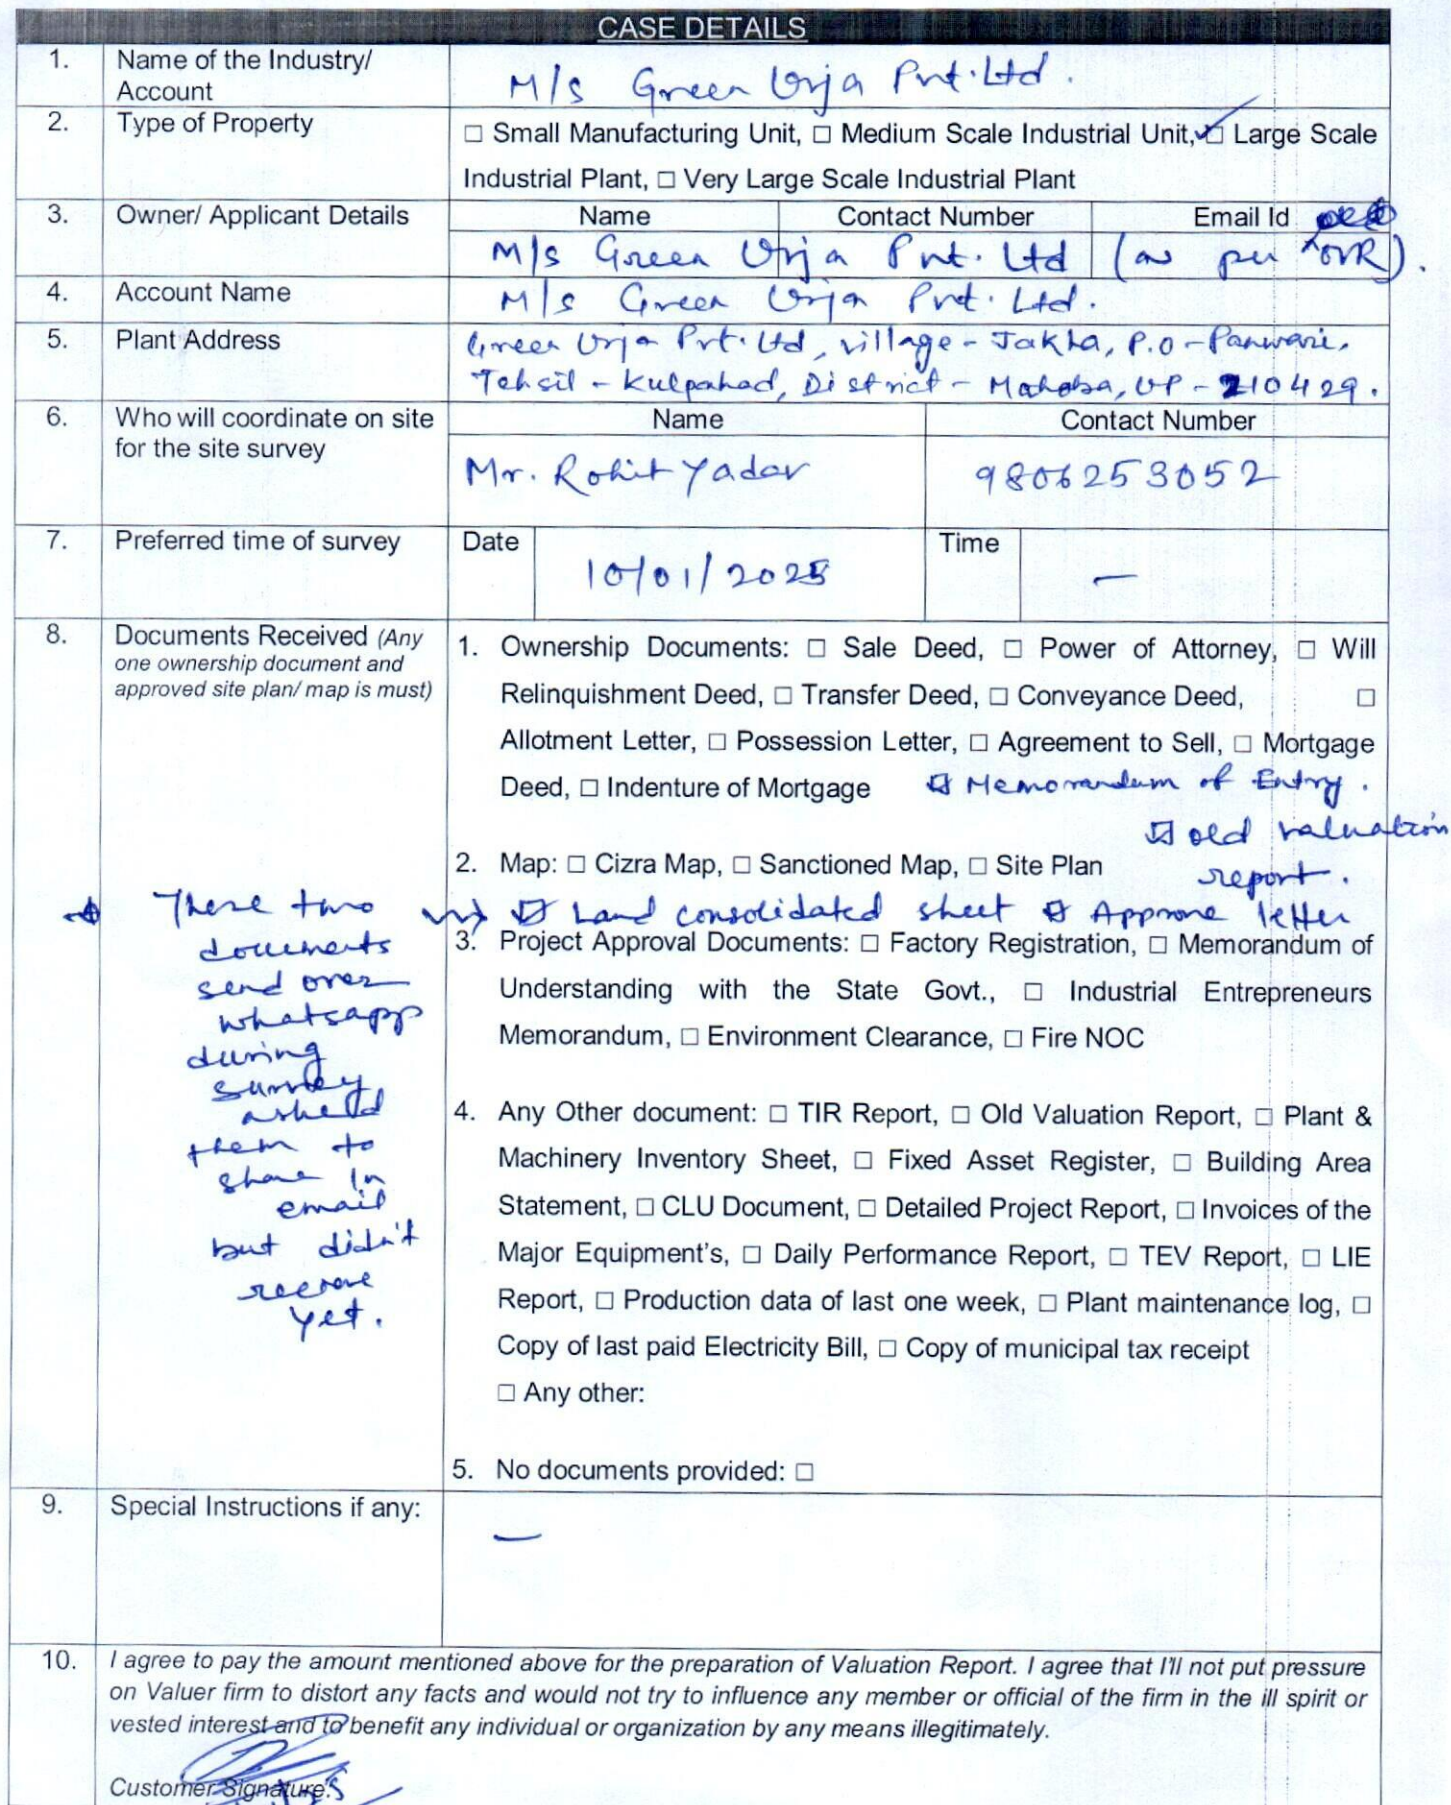 CASE DETAILS
1. Name of the Industry/ Account
M/s Green Urja Pvt. Ltd.
2. Type of Property
☐ Small Manufacturing Unit, ☐ Medium Scale Industrial Unit, ☑ Large Scale
Industrial Plant, ☐ Very Large Scale Industrial Plant
3. Owner/ Applicant Details
Name Contact Number Email Id
M/s Green Urja Pvt. Ltd (as per OVR).
4. Account Name
M/s Green Urja Pvt. Ltd.
5. Plant Address
Green Urja Pvt. Ltd, village - Jakha, P.O - Panwari,
Tehsil - Kulpahad, District - Mahoba, UP - 210429.
6. Who will coordinate on site
for the site survey
Name Contact Number
Mr. Rohit Yadav 9806253052
7. Preferred time of survey
Date 10/01/2025 Time —
8. Documents Received (Any
one ownership document and
approved site plan/ map is must)
1. Ownership Documents: ☐ Sale Deed, ☐ Power of Attorney, ☐ Will
Relinquishment Deed, ☐ Transfer Deed, ☐ Conveyance Deed, ☐
Allotment Letter, ☐ Possession Letter, ☐ Agreement to Sell, ☐ Mortgage
Deed, ☐ Indenture of Mortgage ☑ Memorandum of Entry.
☑ old valuation
report.
2. Map: ☐ Cizra Map, ☐ Sanctioned Map, ☐ Site Plan
☑ Land consolidated sheet ☑ Approve letter
These two
documents
send over
whatsapp
during
survey
asked
them to
share in
email
but didn't
receive
yet.
3. Project Approval Documents: ☐ Factory Registration, ☐ Memorandum of
Understanding with the State Govt., ☐ Industrial Entrepreneurs
Memorandum, ☐ Environment Clearance, ☐ Fire NOC
4. Any Other document: ☐ TIR Report, ☐ Old Valuation Report, ☐ Plant &
Machinery Inventory Sheet, ☐ Fixed Asset Register, ☐ Building Area
Statement, ☐ CLU Document, ☐ Detailed Project Report, ☐ Invoices of the
Major Equipment's, ☐ Daily Performance Report, ☐ TEV Report, ☐ LIE
Report, ☐ Production data of last one week, ☐ Plant maintenance log, ☐
Copy of last paid Electricity Bill, ☐ Copy of municipal tax receipt
☐ Any other:
5. No documents provided: ☐
9. Special Instructions if any:
—
10. I agree to pay the amount mentioned above for the preparation of Valuation Report. I agree that I'll not put pressure
on Valuer firm to distort any facts and would not try to influence any member or official of the firm in the ill spirit or
vested interest and to benefit any individual or organization by any means illegitimately.
Customer Signature: